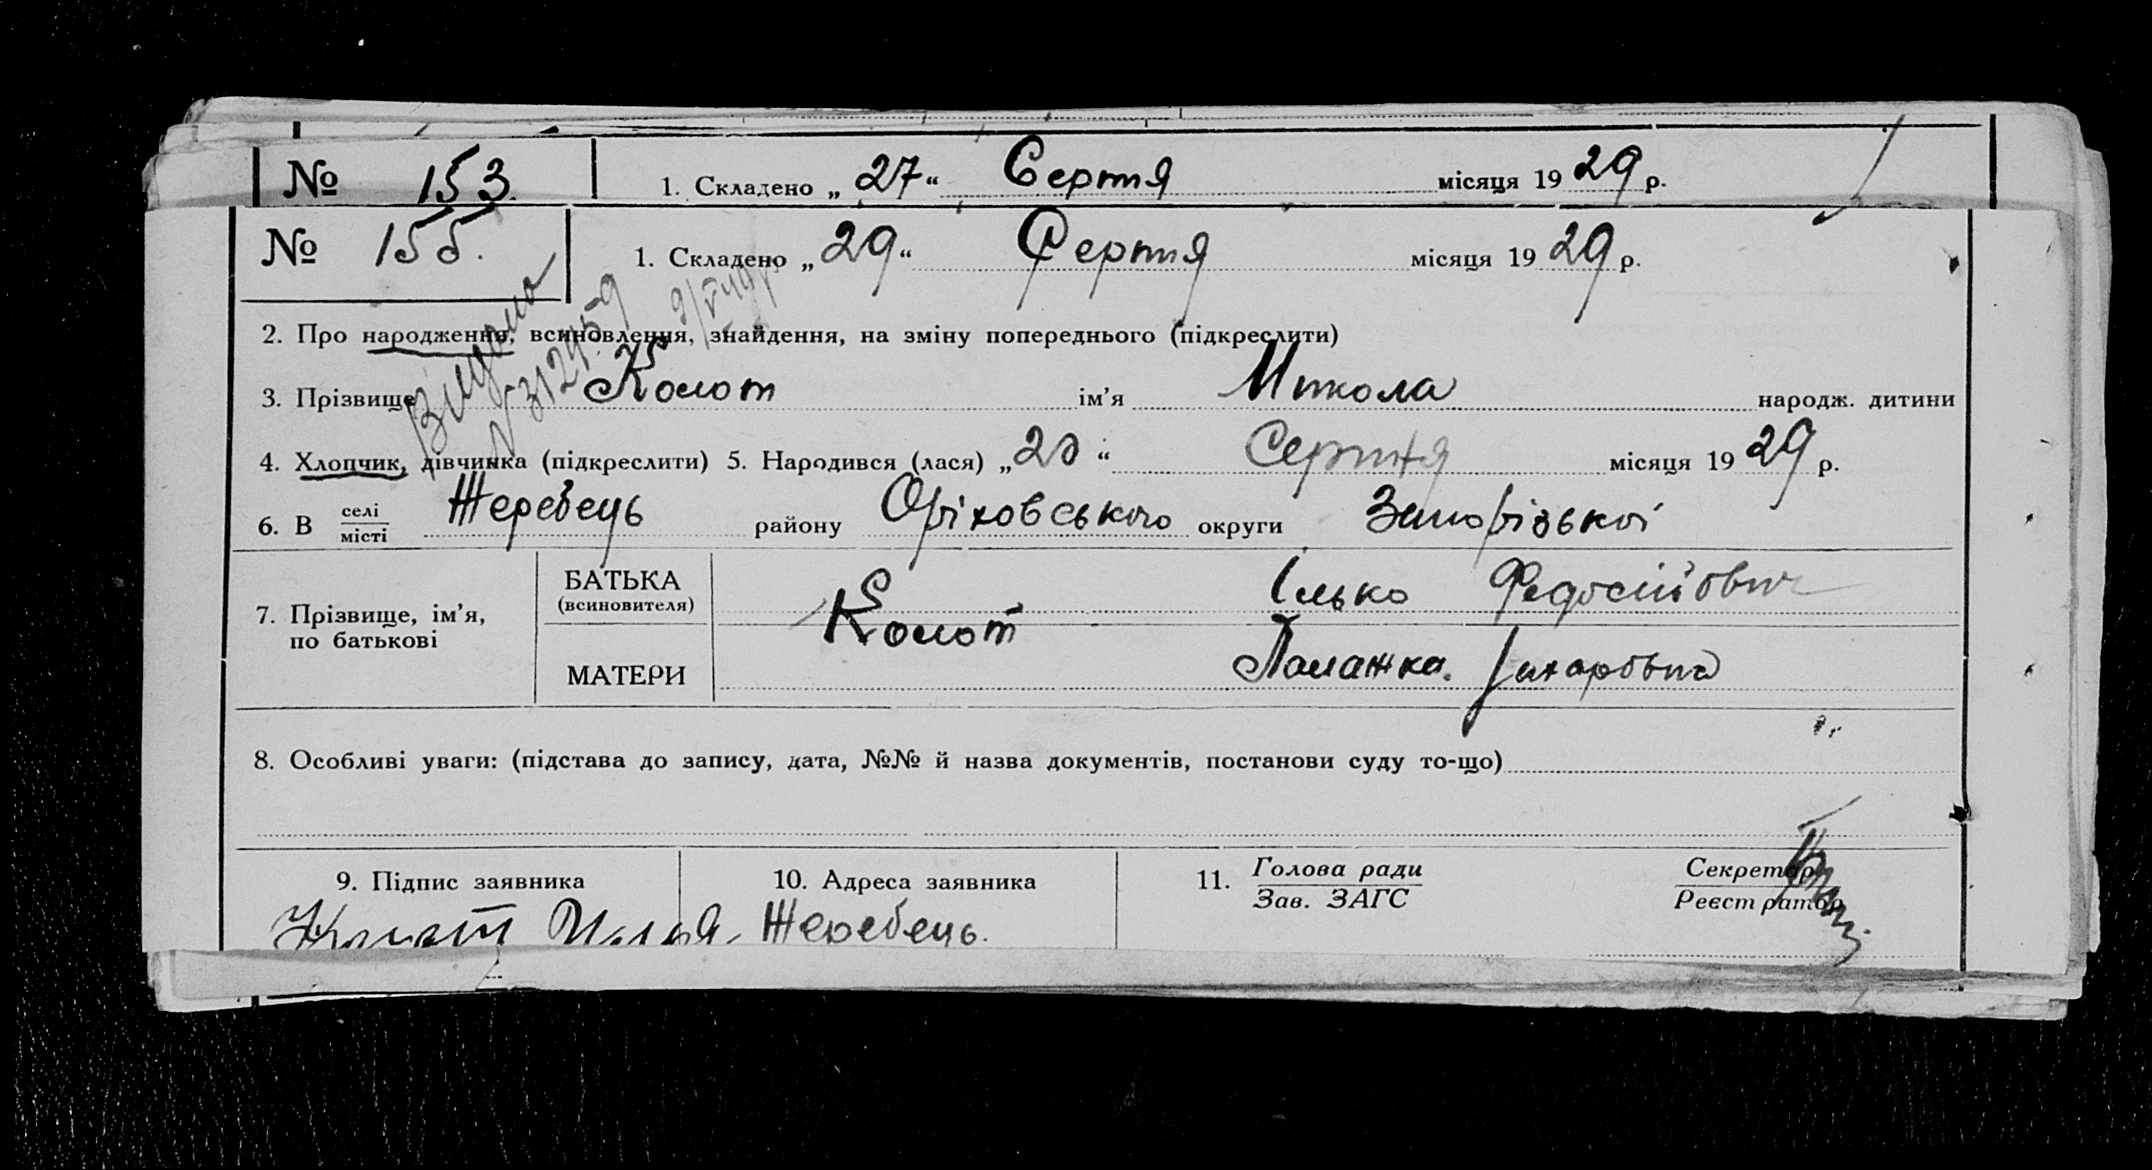 № 153. 1. Складено „27“ Серпня місяця 1929 р.
№ 155. 1. Складено „29“ Серпня місяця 1929 р.
2. Про народження, всиновлення, знайдення, на зміну попереднього (підкреслити)
3. Прізвище Колот ім’я Микола народж. дитини
4. Хлопчик, дівчинка (підкреслити) 5. Народився (лася) „20“ Серпня місяця 1929 р.
6. В селі
місті Жеребець району Оріховського округи Запорізької
7. Прізвище, ім’я,
по батькові
БАТЬКА
(всиновителя)
Колот Ілько Федосійович
МАТЕРИ Палажка Захаровна
8. Особливі уваги: (підстава до запису, дата, №№ й назва документів, постанови суду то-що)
9. Підпис заявника 10. Адреса заявника 11. Голова ради Секретар
Зав. ЗАГС Реєстратор
Колот Илья Жеребець.